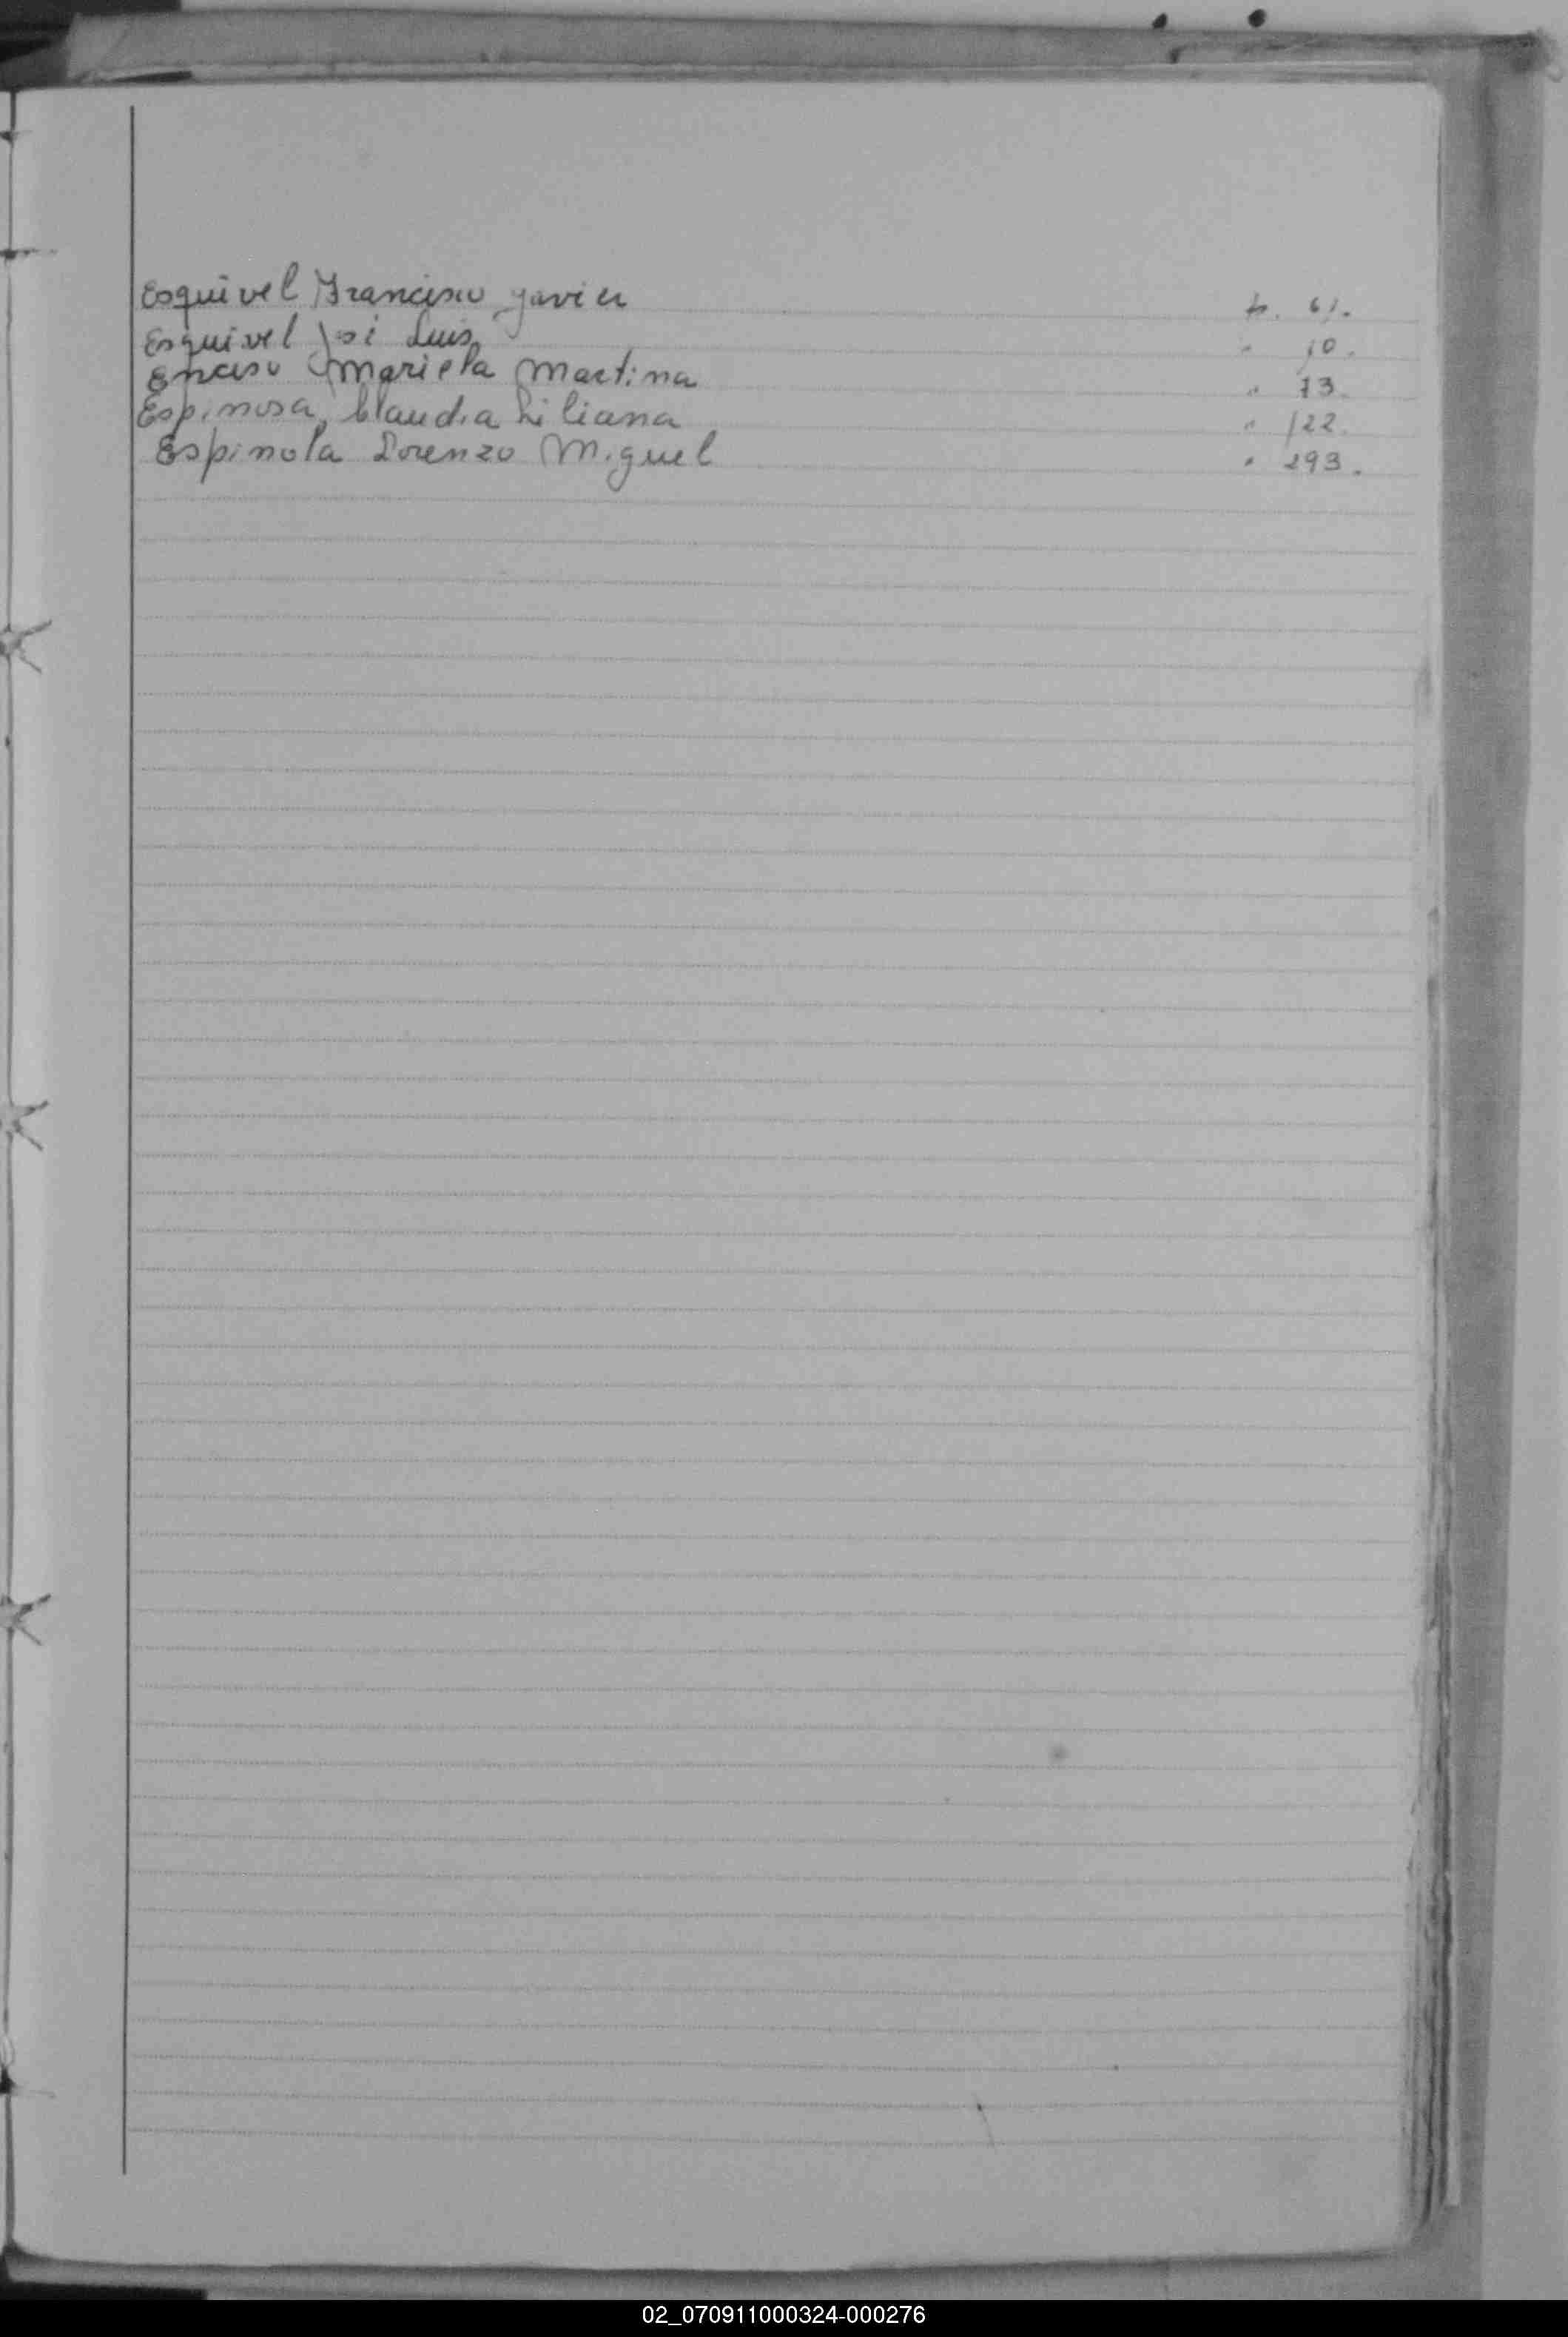 Esquivel Francisco Javier p. 61.
Esquivel José Luis " 10.
Enciso Mariela Martina " 73.
Espinosa, Claudia Liliana " 122.
Espinola Lorenzo Miguel " 293.
02_070911000324-000276